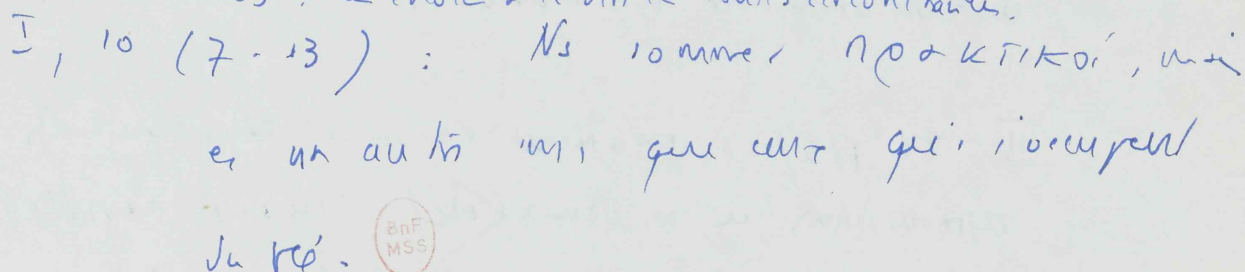 circonstances.
I, 10 (7-13) : Ns sommes πρακτικοί, mais
en un autre sens que ceux qui s'occupent
du
BnF
MSS